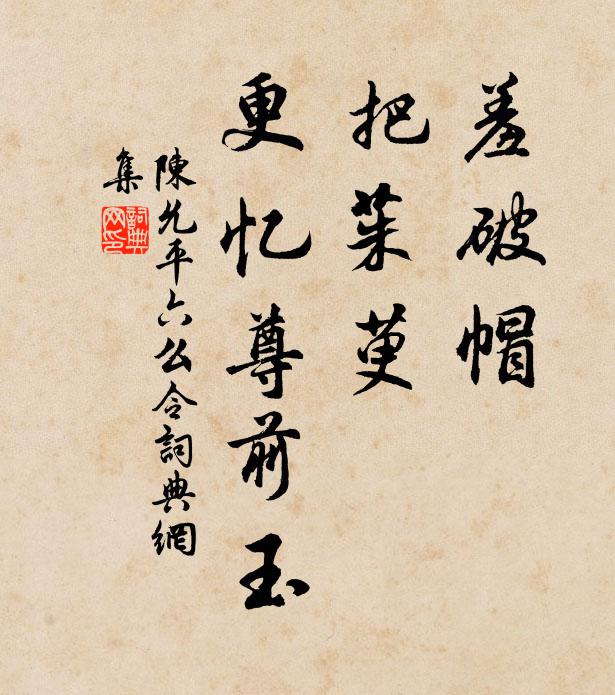 羞破帽
把茱萸
更忆尊前玉
陳允平六么令詞典網
集
詞典網印